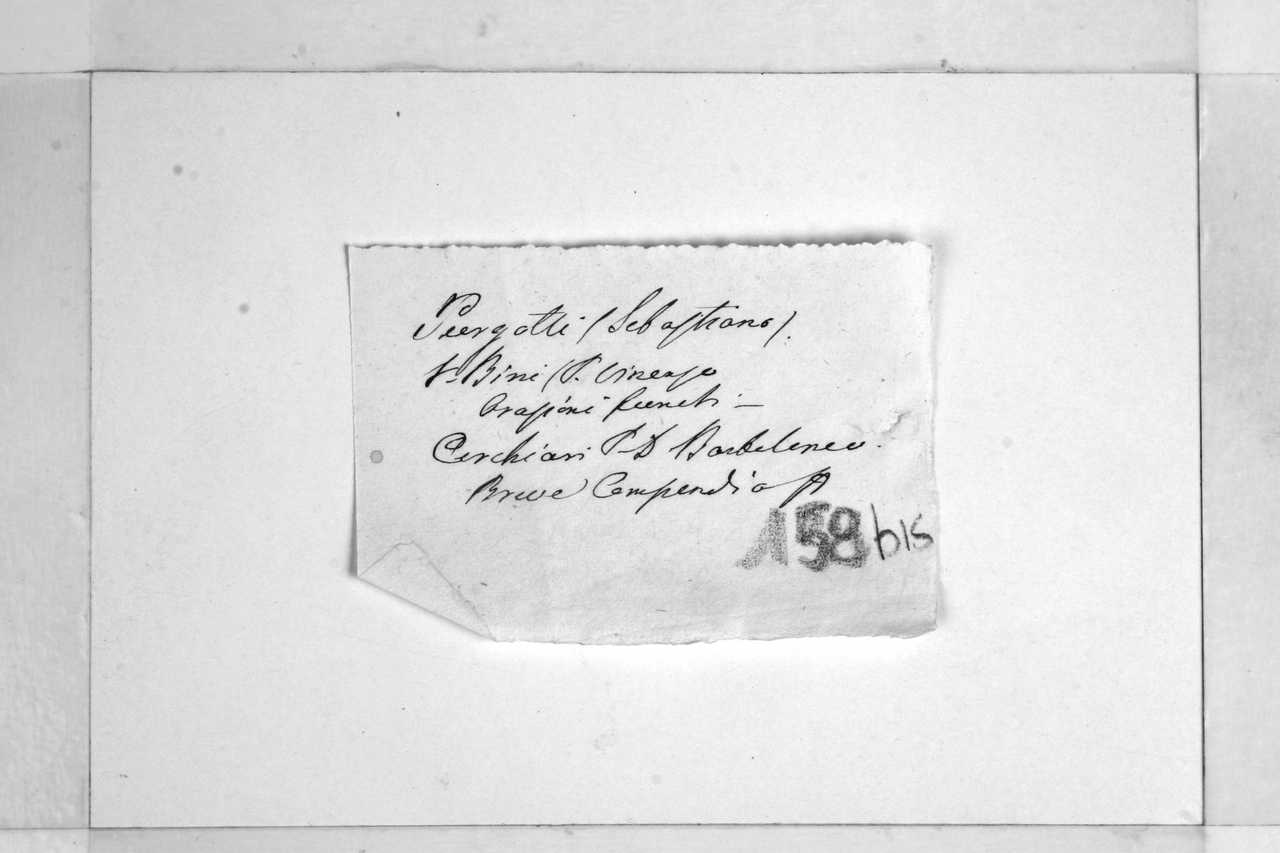 Piergotti (Sebastiano).
Bini (P. Vincenzo
Orazioni funebri —
Cerchiari P. D Bartolomeo.
Breve Compendio
158 bis